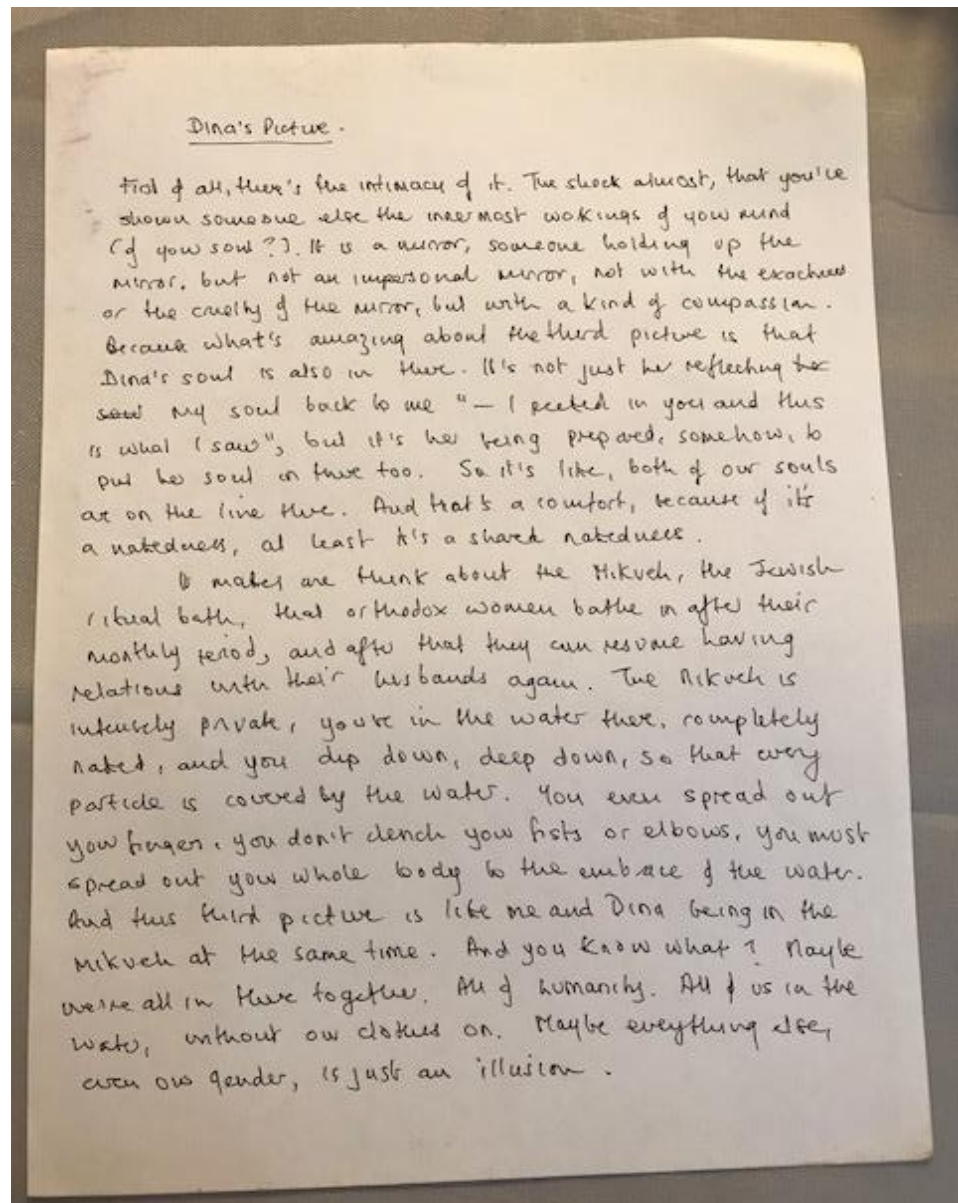 Dina's Picture.
First of all, there's the intimacy of it. The shock almost, that you've
shown someone else the innermost workings of your mind
(of your soul?). It is a mirror, someone holding up the
mirror, but not an impersonal mirror, not with the exactness
or the cruelty of the mirror, but with a kind of compassion.
Because what's amazing about the third picture is that
Dina's soul is also in there. It's not just her reflecting her
soul my soul back to me "— I peeked in you and this
is what I saw", but it's her being prepared, somehow, to
put her soul in there too. So it's like, both of our souls
are on the line there. And that's a comfort, because if it's
a nakedness, at least it's a shared nakedness.
It makes me think about the Mikveh, the Jewish
ritual bath, that orthodox women bathe in after their
monthly period, and after that they can resume having
relations with their husbands again. The Mikveh is
intensely private, you're in the water there, completely
naked, and you dip down, deep down, so that every
particle is covered by the water. You even spread out
your fingers, you don't clench your fists or elbows, you must
spread out your whole body to the embrace of the water.
And this third picture is like me and Dina being in the
Mikveh at the same time. And you know what? Maybe
we're all in there together. All of humanity. All of us in the
water, without our clothes on. Maybe everything else,
even our gender, is just an illusion.